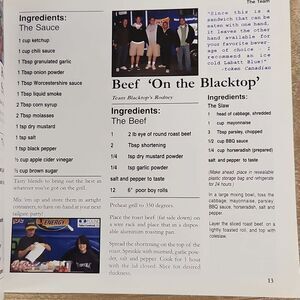 Ingredients:
The Sauce
1 cup ketchup
1 cup chili sauce
1 Tbsp granulated garlic
1 Tbsp onion powder
1 Tbsp Worcestershire sauce
1 Tbsp liquid smoke
2 Tbsp corn syrup
2 Tbsp molasses
1 tsp dry mustard
1 tsp salt
1 tsp black pepper
½ cup apple cider vinegar
½ cup brown sugar
Tarry blends to bring out the best in
whatever you've got on the grill.
Mix 'em up and store them in airtight
containers, to have on hand at your next
tailgate party!
ENERGY
The Team
"Since this is a
sandwich that can be
eaten with one hand,
it leaves the other
hand available for
your favorite bever-
age of choice. I
recommend an ice
cold Labatt Blue!"
-token Canadian
Beef 'On the Blacktop'
Team Blacktop's Rodney
Ingredients:
The Beef
2 lb eye of round roast beef
2 Tbsp shortening
1/4 tsp garlic powder
1/4 tsp dry mustard
salt and pepper to taste
12 6" poor boy rolls
Preheat grill to 350 degrees.
Place the roast beef (fat side down) on
a wire rack and place that in a dispos-
able aluminum roasting pan.
Spread the shortening on the top of the
roast. Sprinkle with mustard, garlic pow-
der, salt and pepper. Cook for 1 hour
with the lid closed. Slice for desired
thickness.
Ingredients:
The Slaw
1 head of cabbage, shredded
1 cup mayonnaise
3 Tbsp parsley, chopped
1/2 cup BBQ sauce
1/4 cup horseradish (prepared)
salt and pepper to taste
(Make ahead, place in resealable
plastic storage bag and refrigerate
for 24 hours.)
In a large mixing bowl, toss the
cabbage, mayonnaise, parsley
BBQ sauce, horseradish, salt and
pepper.
Layer the sliced roast beef on a
lightly toasted roll, and top with
coleslaw.
13